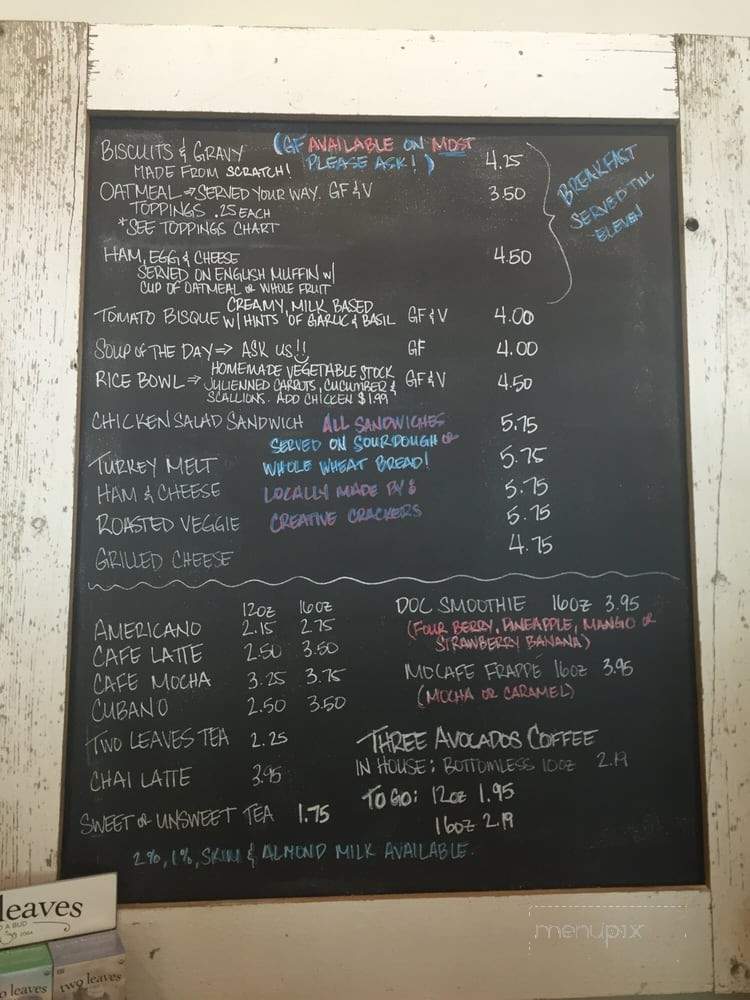 BISCUITS & GRAVY (GF AVAILABLE ON MOST 4.25
MADE FROM SCRATCH! PLEASE ASK!)
OATMEAL → SERVED YOUR WAY. GF & V 3.50
TOPPINGS .25 EACH
*SEE TOPPINGS CHART
BREAKFAST
SERVED TILL
ELEVEN
HAM, EGG & CHEESE 4.50
SERVED ON ENGLISH MUFFIN W/
CUP OF OATMEAL OR WHOLE FRUIT
TOMATO BISQUE CREAMY, MILK BASED
W/ HINTS OF GARLIC & BASIL GF & V 4.00
SOUP OF THE DAY ⇒ ASK US!! GF 4.00
RICE BOWL ⇒ HOMEMADE VEGETABLE STOCK
JULIENNED CARROTS, CUCUMBER & GF & V 4.50
SCALLIONS. ADD CHICKEN $1.99
CHICKEN SALAD SANDWICH 5.75
ALL SANDWICHES
SERVED ON SOURDOUGH OR
WHOLE WHEAT BREAD!
LOCALLY MADE BY:
CREATIVE CRACKERS
TURKEY MELT 5.75
HAM & CHEESE 5.75
ROASTED VEGGIE 5.75
GRILLED CHEESE 4.75
12OZ 16OZ
AMERICANO 2.15 2.75
CAFE LATTE 2.50 3.50
CAFE MOCHA 3.25 3.75
CUBANO 2.50 3.50
TWO LEAVES TEA 2.25
CHAI LATTE 3.95
SWEET OR UNSWEET TEA 1.75
DOC SMOOTHIE 16OZ 3.95
(FOUR BERRY, PINEAPPLE, MANGO OR
STRAWBERRY BANANA)
MOCAFE FRAPPE 16OZ 3.95
(MOCHA OR CARAMEL)
THREE AVOCADOS COFFEE
IN HOUSE: BOTTOMLESS 10OZ 2.19
TO GO: 12OZ 1.95
16OZ 2.19
2%, 1%, SKIM & ALMOND MILK AVAILABLE.
leaves
two leaves
two leaves
menupix